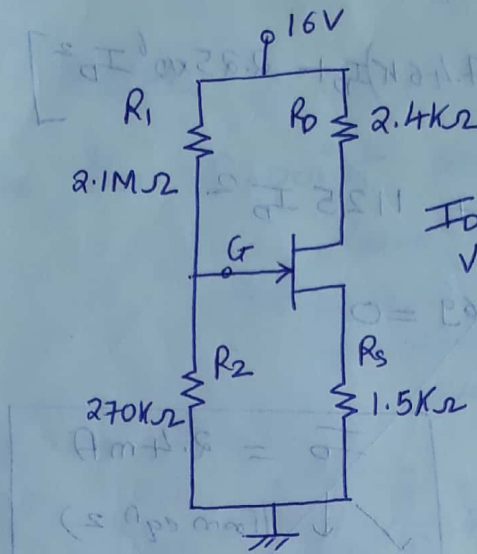 16V
R1
RD 2.4KΩ
2.1MΩ
G
R2
RS
270KΩ
1.5KΩ